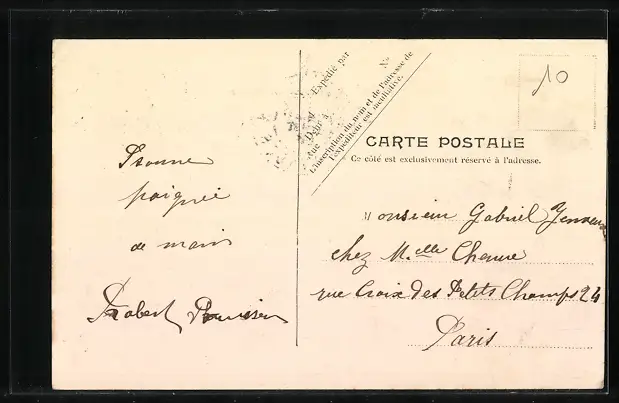 10
Expédié par
Nº
L'inscription du nom et de l'adresse de
l'expéditeur est facultative.
CARTE POSTALE
Ce côté est exclusivement réservé à l'adresse.
Bonne
poignée
de main
Robert
Monsieur Gabriel
chez M.elle
rue Croix des Petits Champs 24
Paris